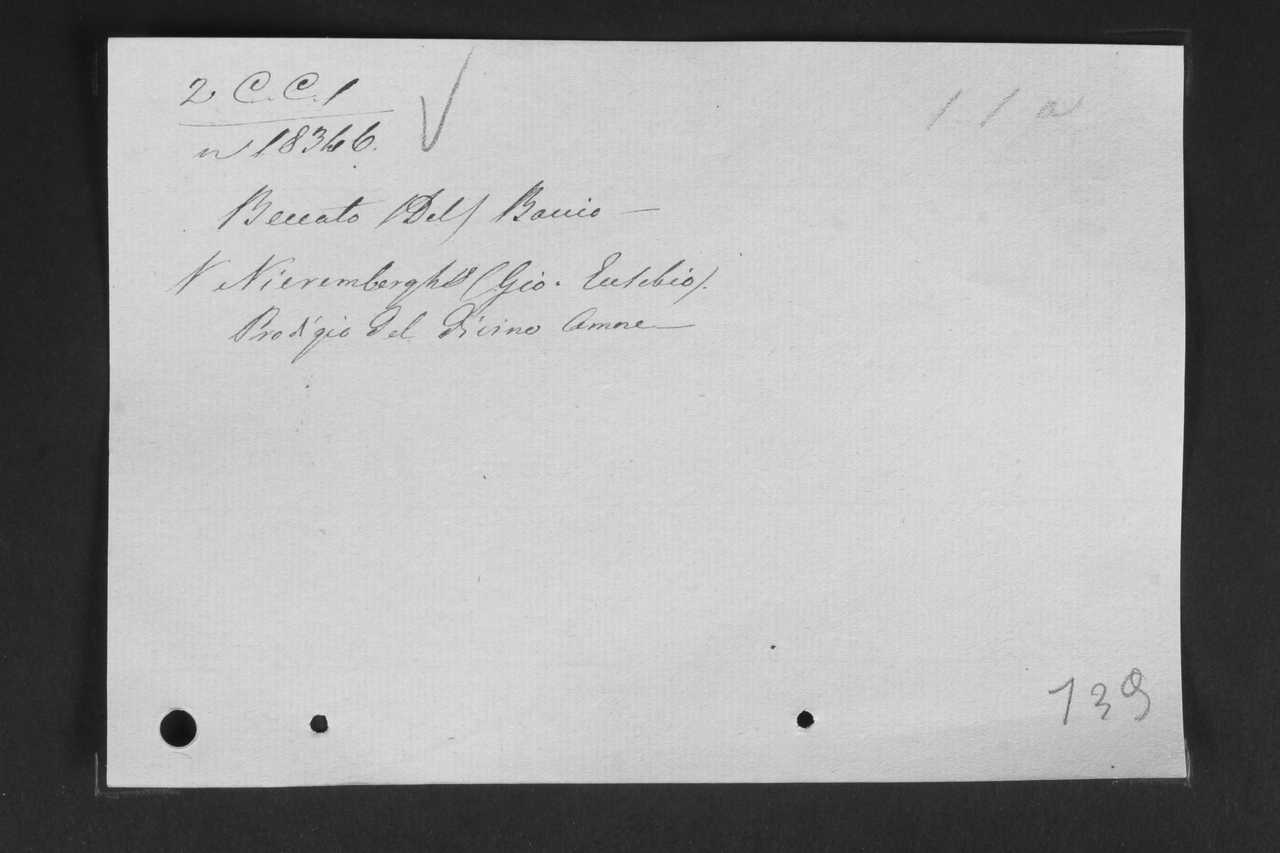 2 C.C.1
n 18346.
1 1 a
Beccato (Del) Baccio —
V Nieremberghe (Gio. Eusebio).
Prodigio del divino Amore —
139